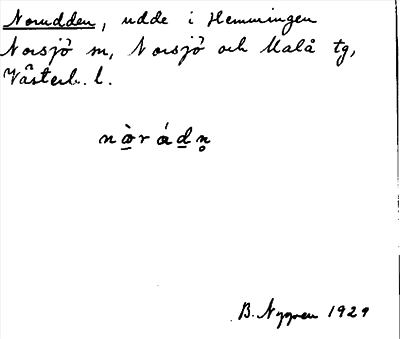 Norudden, udde i Hemmingen
Norsjö sn, Norsjö och Malå tg,
Västerb. l.
B. Nygren 1929